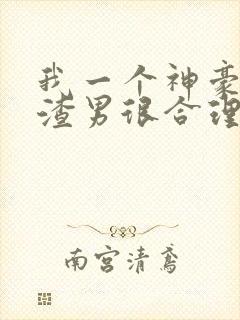 我一个神豪
渣男很合理
南宫清鸢